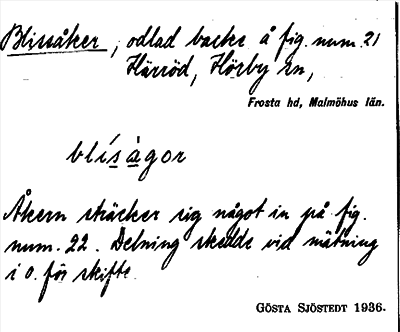 Blissåker, odlad backe å fig. num. 21
Härröd, Hörby sn,
Frosta hd, Malmöhus län.
blísàgor
Åkern sträcker sig något in på fig.
num. 22. Delning skedde vid mätning
i o. för skifte.
GÖSTA SJÖSTEDT 1936.